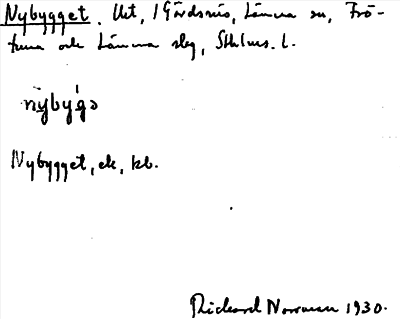 Nybygget. Utt, 1 Gärdsnäs, Länna sn, Frö-
tuna och Länna slg, Sthlms. L.
nybygə
Nybygget, ek, kb.
Rickard Norrman 1930.